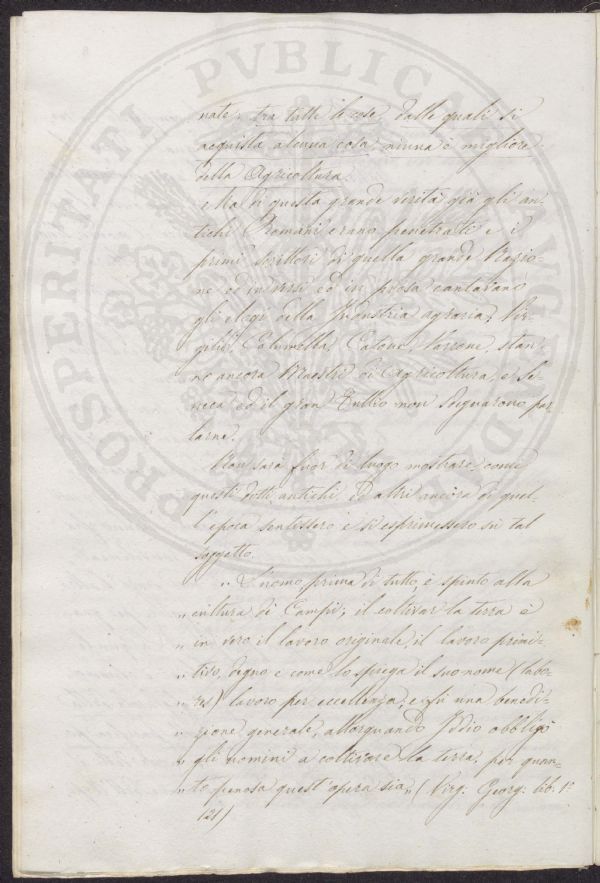 PROSPERITATI PVBLICAE AVGENDAE
nate: tra tutte le cose, dalle quali si
acquista alcuna cosa niuna è migliore
della Agricoltura.
Ma di questa grande verità già gli an-
tichi Romani erano penetrati e i
primi scrittori di quella grande Nazio-
ne ed in versi ed in prosa cantavano
gli elogi della Industria agraria; Vir-
gilio, Columella, Catone, Varrone, stan-
no ancora Maestri di Agricoltura, e Se-
neca ed il gran Tullio non sdegnarono par
larne.
Non sarà fuor di luogo mostrare come
questi dotti antichi, ed altri ancora di quel-
l'epoca sentissero e si esprimessero su tal
soggetto.
„ L'uomo prima di tutto, è spinto alla
„ cultura di Campi; il coltivar la terra è
„ in vero il lavoro originale, il lavoro primi-
„ tivo, degno e come lo spiega il suo nome (labo-
„ res) lavoro per eccellenza, e fù una benedi-
„ zione generale, allorquando Iddio obbligò
„ gli uomini a coltivare la terra, per quan-
„ to penosa quest'opera sia„ (Virg: Georg: lib. 1º
121)